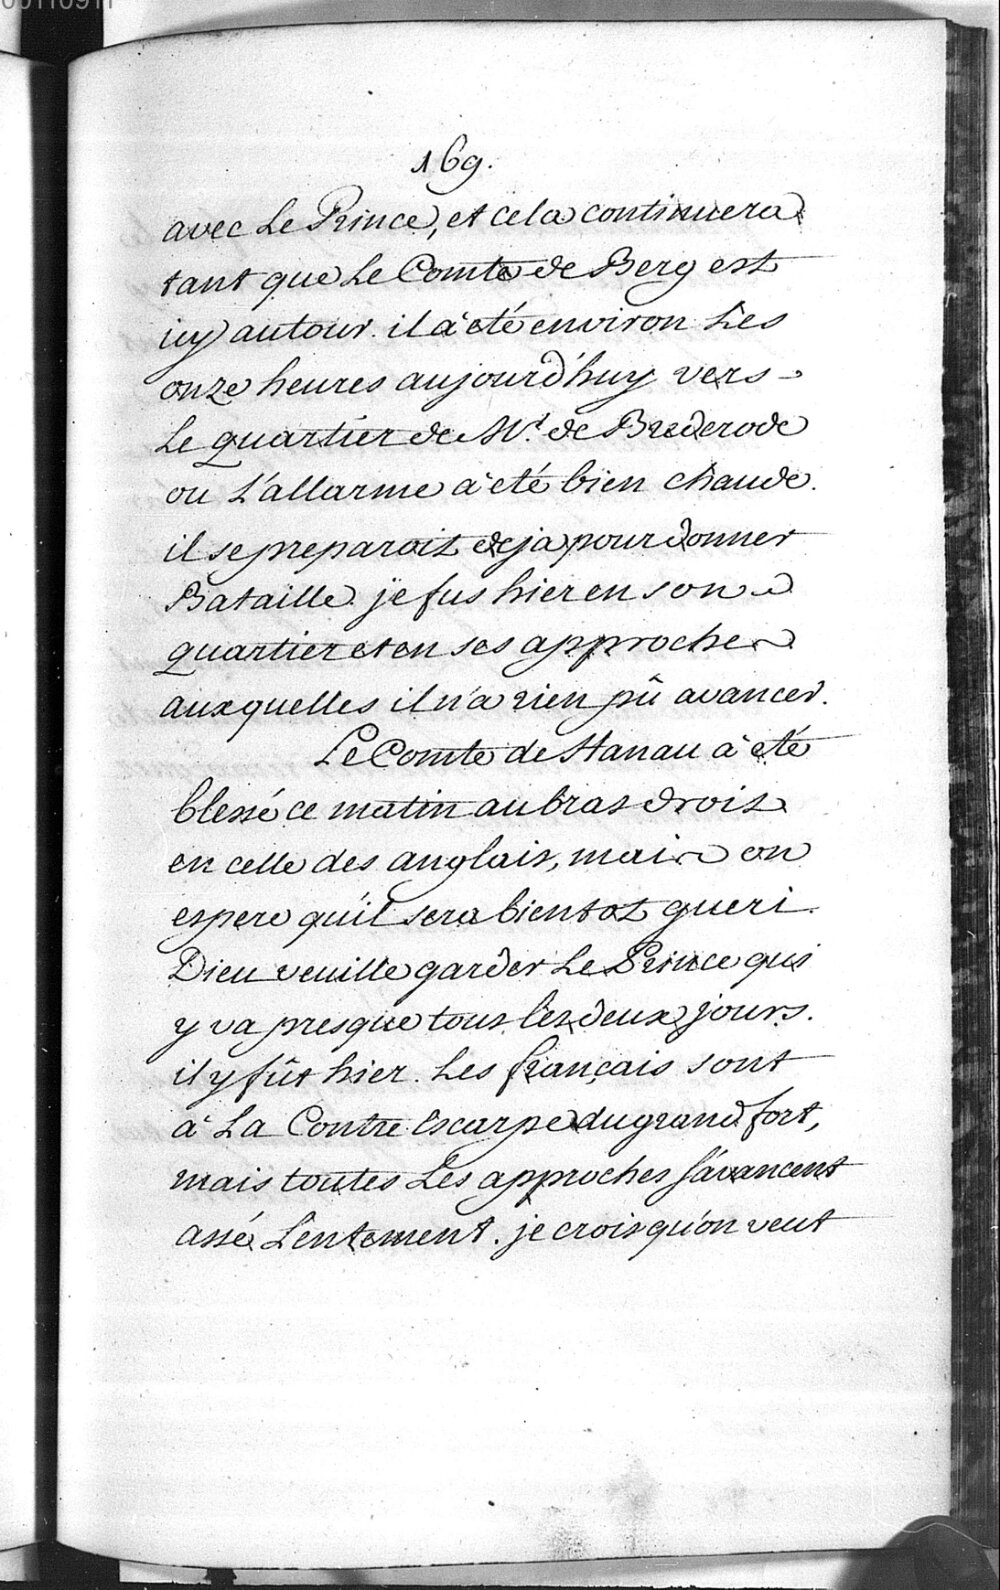 169.
avec Le Prince, et cela continuera
tant que Le Comte de Berg est
icy autour. il à eté environ Les
onze heures aujourd'huy vers
Le quartier de Mr. de Brederode
ou L'allarme à eté bien chaude.
il se preparoit deja pour donner
Bataille. je fus hier en son
quartier et en ses approches
auxquelles il n'a rien pû avancer.
Le Comte de Hanau à eté
blessé ce matin au bras droit
en celle des anglais, mais on
espere qu'il sera bientot gueri.
Dieu veuille garder Le Prince qui
y va presque tous les deux jours.
il y fût hier. Les français sont
à La Contre Escarpe du grand fort,
mais toutes Les approches s'avancent
assé Lentement. je crois qu'on veut